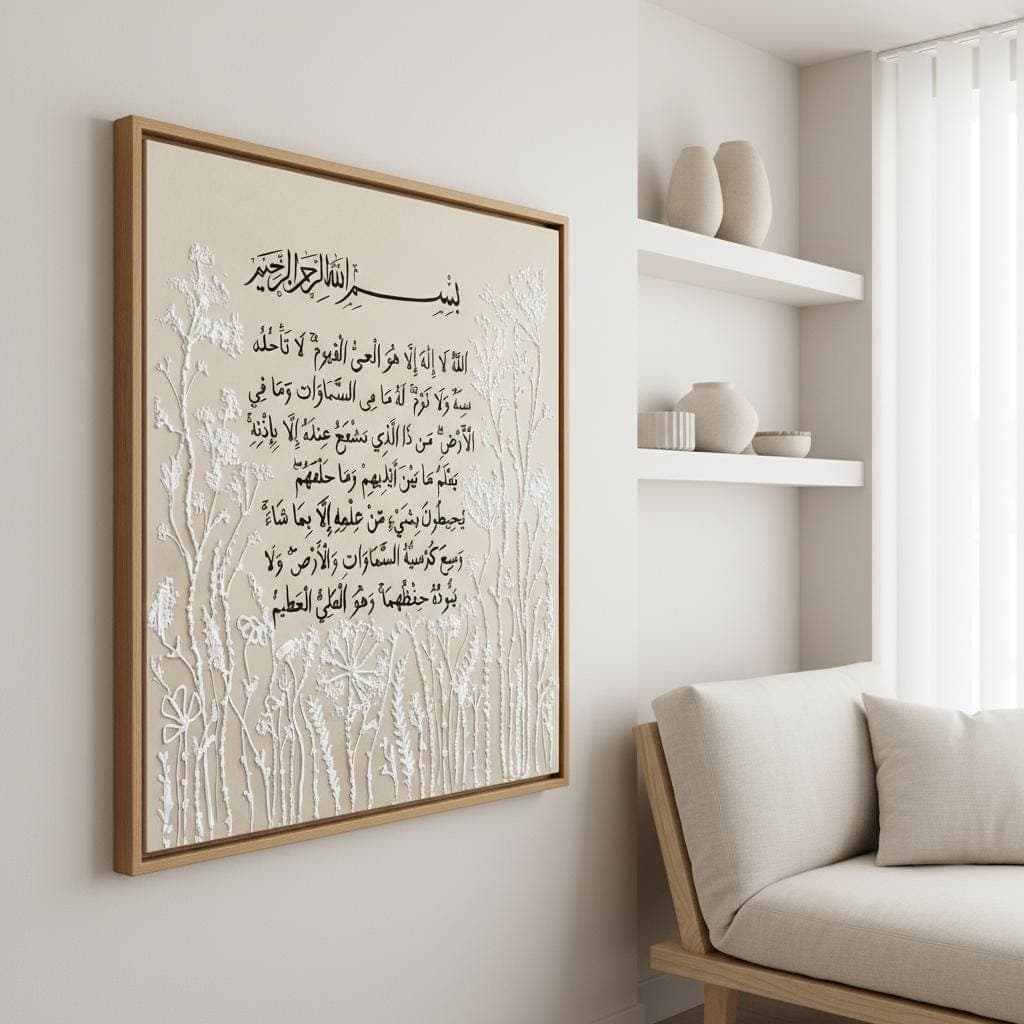 بِسْمِ اللَّهِ الرَّحْمَٰنِ الرَّحِيمِ
اللَّهُ لَا إِلَٰهَ إِلَّا هُوَ الْعىُّ لَا
وَلَا نَوْمٌ ۚ لَهُ مَا فى السَّمَاوَات وَمَا فِي
الْأَرْضِ ۗ مَن ذَا الَّذِي عِندَهُ إِلَّا بِإِذْنِهِ ۚ
مَا بَيْنَ أَيْدِيهِمْ وَمَا حَلْفَهُمْ
يُحِيطُونَ بِشَيْءٍ مِّنْ عِلْمِهِ إِلَّا بِمَا شَاءَ ۚ
وَسِعَ كُرْسِيُّهُ السَّمَاوَاتِ وَالْأَرْضَ ۖ وَلَا
حِفْظُهُمَا ۚ وَهُوَ الْعَلِيُّ الْعَظِيمُ